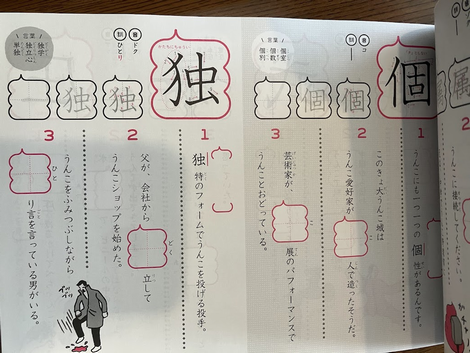 属
読
うんこに擬態してください。
個
音 コ
訓 ―
言葉
個室
個数
個別
個
個
1
このきょ大うんこ城は
うんこも一つ一つの個性があるんです。
2
うんこ愛好家が
こ
人で造ったそうだ。
3
芸術家が、
こ
展のパフォーマンスで
うんことおどっている。
独
音 ドク
訓 ひとり
言葉
独学
独立心
単独
独
独
1
独特のフォームでうんこを投げる投手。
2
父が、会社から
どく
立して
うんこショップを始めた。
3
うんこをふみつぶしながら
ひと
り言を言っている男がいる。